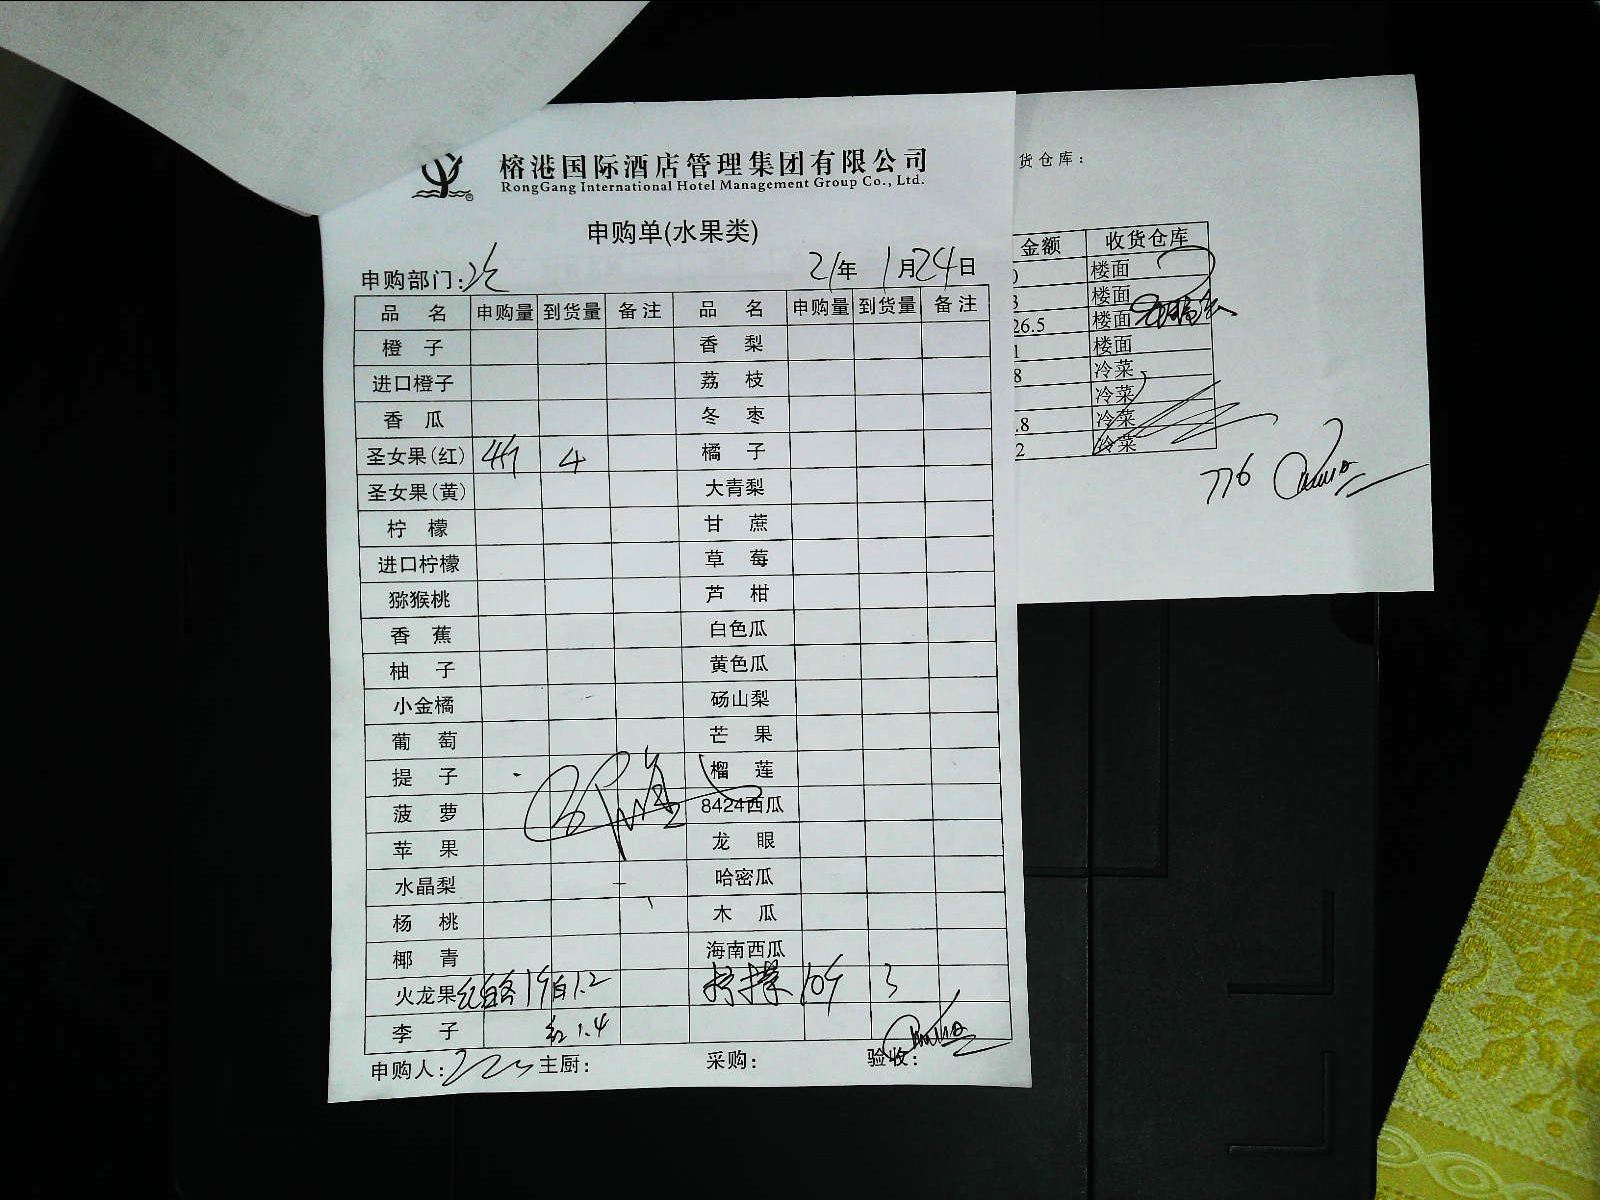 榕港国际酒店管理集团有限公司
RongGang International Hotel Management Group Co., Ltd.
申购单(水果类)
申购部门: 21年 1月24日
品名 申购量 到货量 备注 品名 申购量 到货量 备注
橙子 香梨
进口橙子 荔枝
香瓜 冬枣
圣女果(红) 4斤 4 橘子
圣女果(黄) 大青梨
柠檬 甘蔗
进口柠檬 草莓
猕猴桃 芦柑
香蕉 白色瓜
柚子 黄色瓜
小金橘 砀山梨
葡萄 芒果
提子 榴莲
菠萝 8424西瓜
苹果 龙眼
水晶梨 哈密瓜
杨桃 木瓜
椰青 海南西瓜
火龙果 红白各1个 白1.2 柠檬 10个 3
李子 红1.4
申购人: 主厨: 采购: 验收:
货仓库:
金额 收货仓库
楼面
楼面
26.5 楼面
1 楼面
8 冷菜
冷菜
.8 冷菜
2 冷菜
776